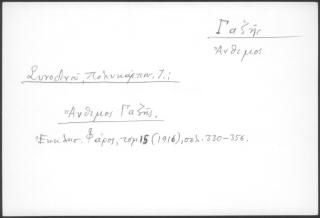 Γαζῆς
Ἄνθιμος
Συνοδινοῦ, Πολυκάρπου, Ἰ.;
Ἄνθιμος Γαζῆς.
Ἐκκλησ. Φάρος, τομ 15 (1916), σελ. 330-356.